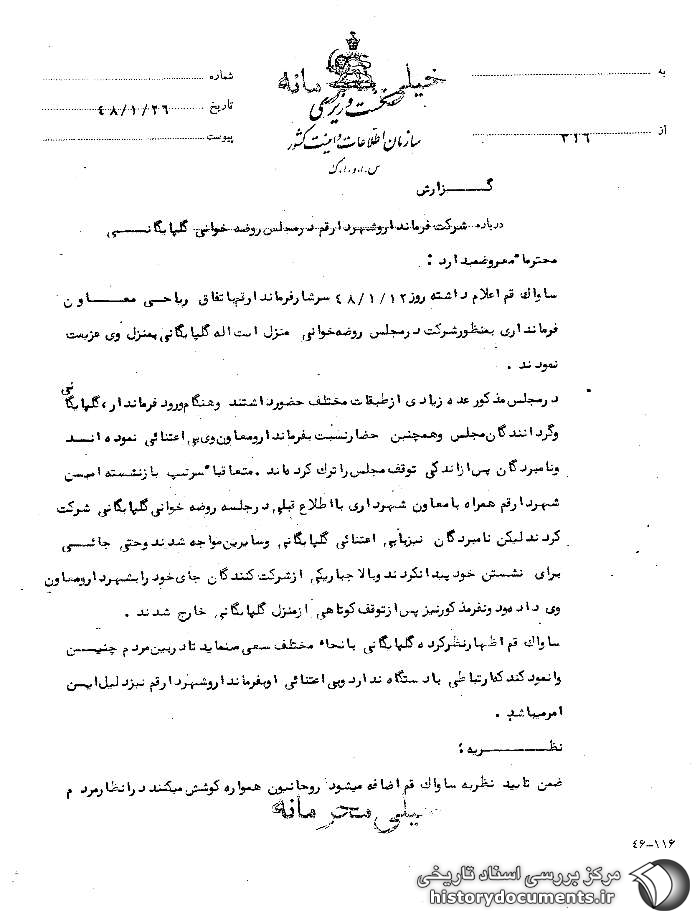 خیلی محرمانه
به
شماره
نخست وزیری
تاریخ ۴۸/۱/۲۶
سازمان اطلاعات و امنیت کشور
از ۳۱۶
پیوست
س.ا.و.ا.ک
گـــــزارش
درباره شرکت فرماندار و شهردار قم در مجلس روضه خوانی گلپایگانـــــی
محترما" معروضمیدارد :
ساواک قم اعلام داشته روز ۴۸/۱/۱۲ سرشار فرماندار قم باتفاق ریاحی معـــاون
فرمانداری بمنظور شرکت در مجلس روضه خوانی منزل آیت اله گلپایگانی بمنزل وی عزیمت
نمودند .
در مجلس مذکور عده زیادی از طبقات مختلف حضور داشتند وهنگام ورود فرماندار، گلپایگانی
وگردانندگان مجلس وهمچنین حضار نسبت بفرماندار ومعاون وی بی اعتنائی نموده انـــد
ونامبردگان پس از اندکی توقف مجلس را ترک کرده اند . متعاقبا" سرتیپ بازنشسته امیــن
شهردار قم همراه با معاون شهرداری با اطلاع قبلی در جلسه روضه خوانی گلپایگانی شرکت
کردند لیکن نامبردگان نیز با بی اعتنائی گلپایگانی وسایرین مواجه شدند وحتی جائـــی
برای نشستن خود پیدا نکردند وبالاجبار یکی از شرکت کنندگان جای خود را بشهردار ومعاون
وی داد و دونفر مذکور نیز پس از توقف کوتاهی از منزل گلپایگانی خارج شدند .
ساواک قم اظهار نظر کرده گلپایگانی بانحاء مختلف سعی مینماید تا در بین مردم چنیـــن
وانمود کند که ارتباطی با دستگاه ندارد وبی اعتنائی او بفرماندار وشهردار قم نیز دلیل ایـن
امر میباشد .
نظـــــریه :
ضمن تایید نظریه ساواک قم اضافه میشود روحانیون همواره کوشش میکنند در انظار مردم
خیلی محرمانه
۴۶-۱۱۶
مرکز بررسی اسناد تاریخی
historydocuments.ir